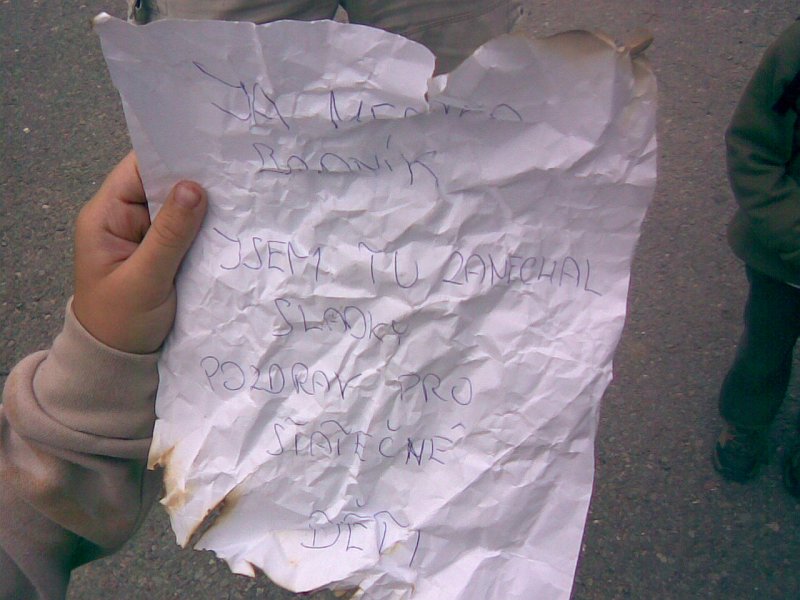 JÁ
JSEM TU ZANECHAL
SLADKÝ
POZDRAV PRO
STATEČNÉ
DĚTI